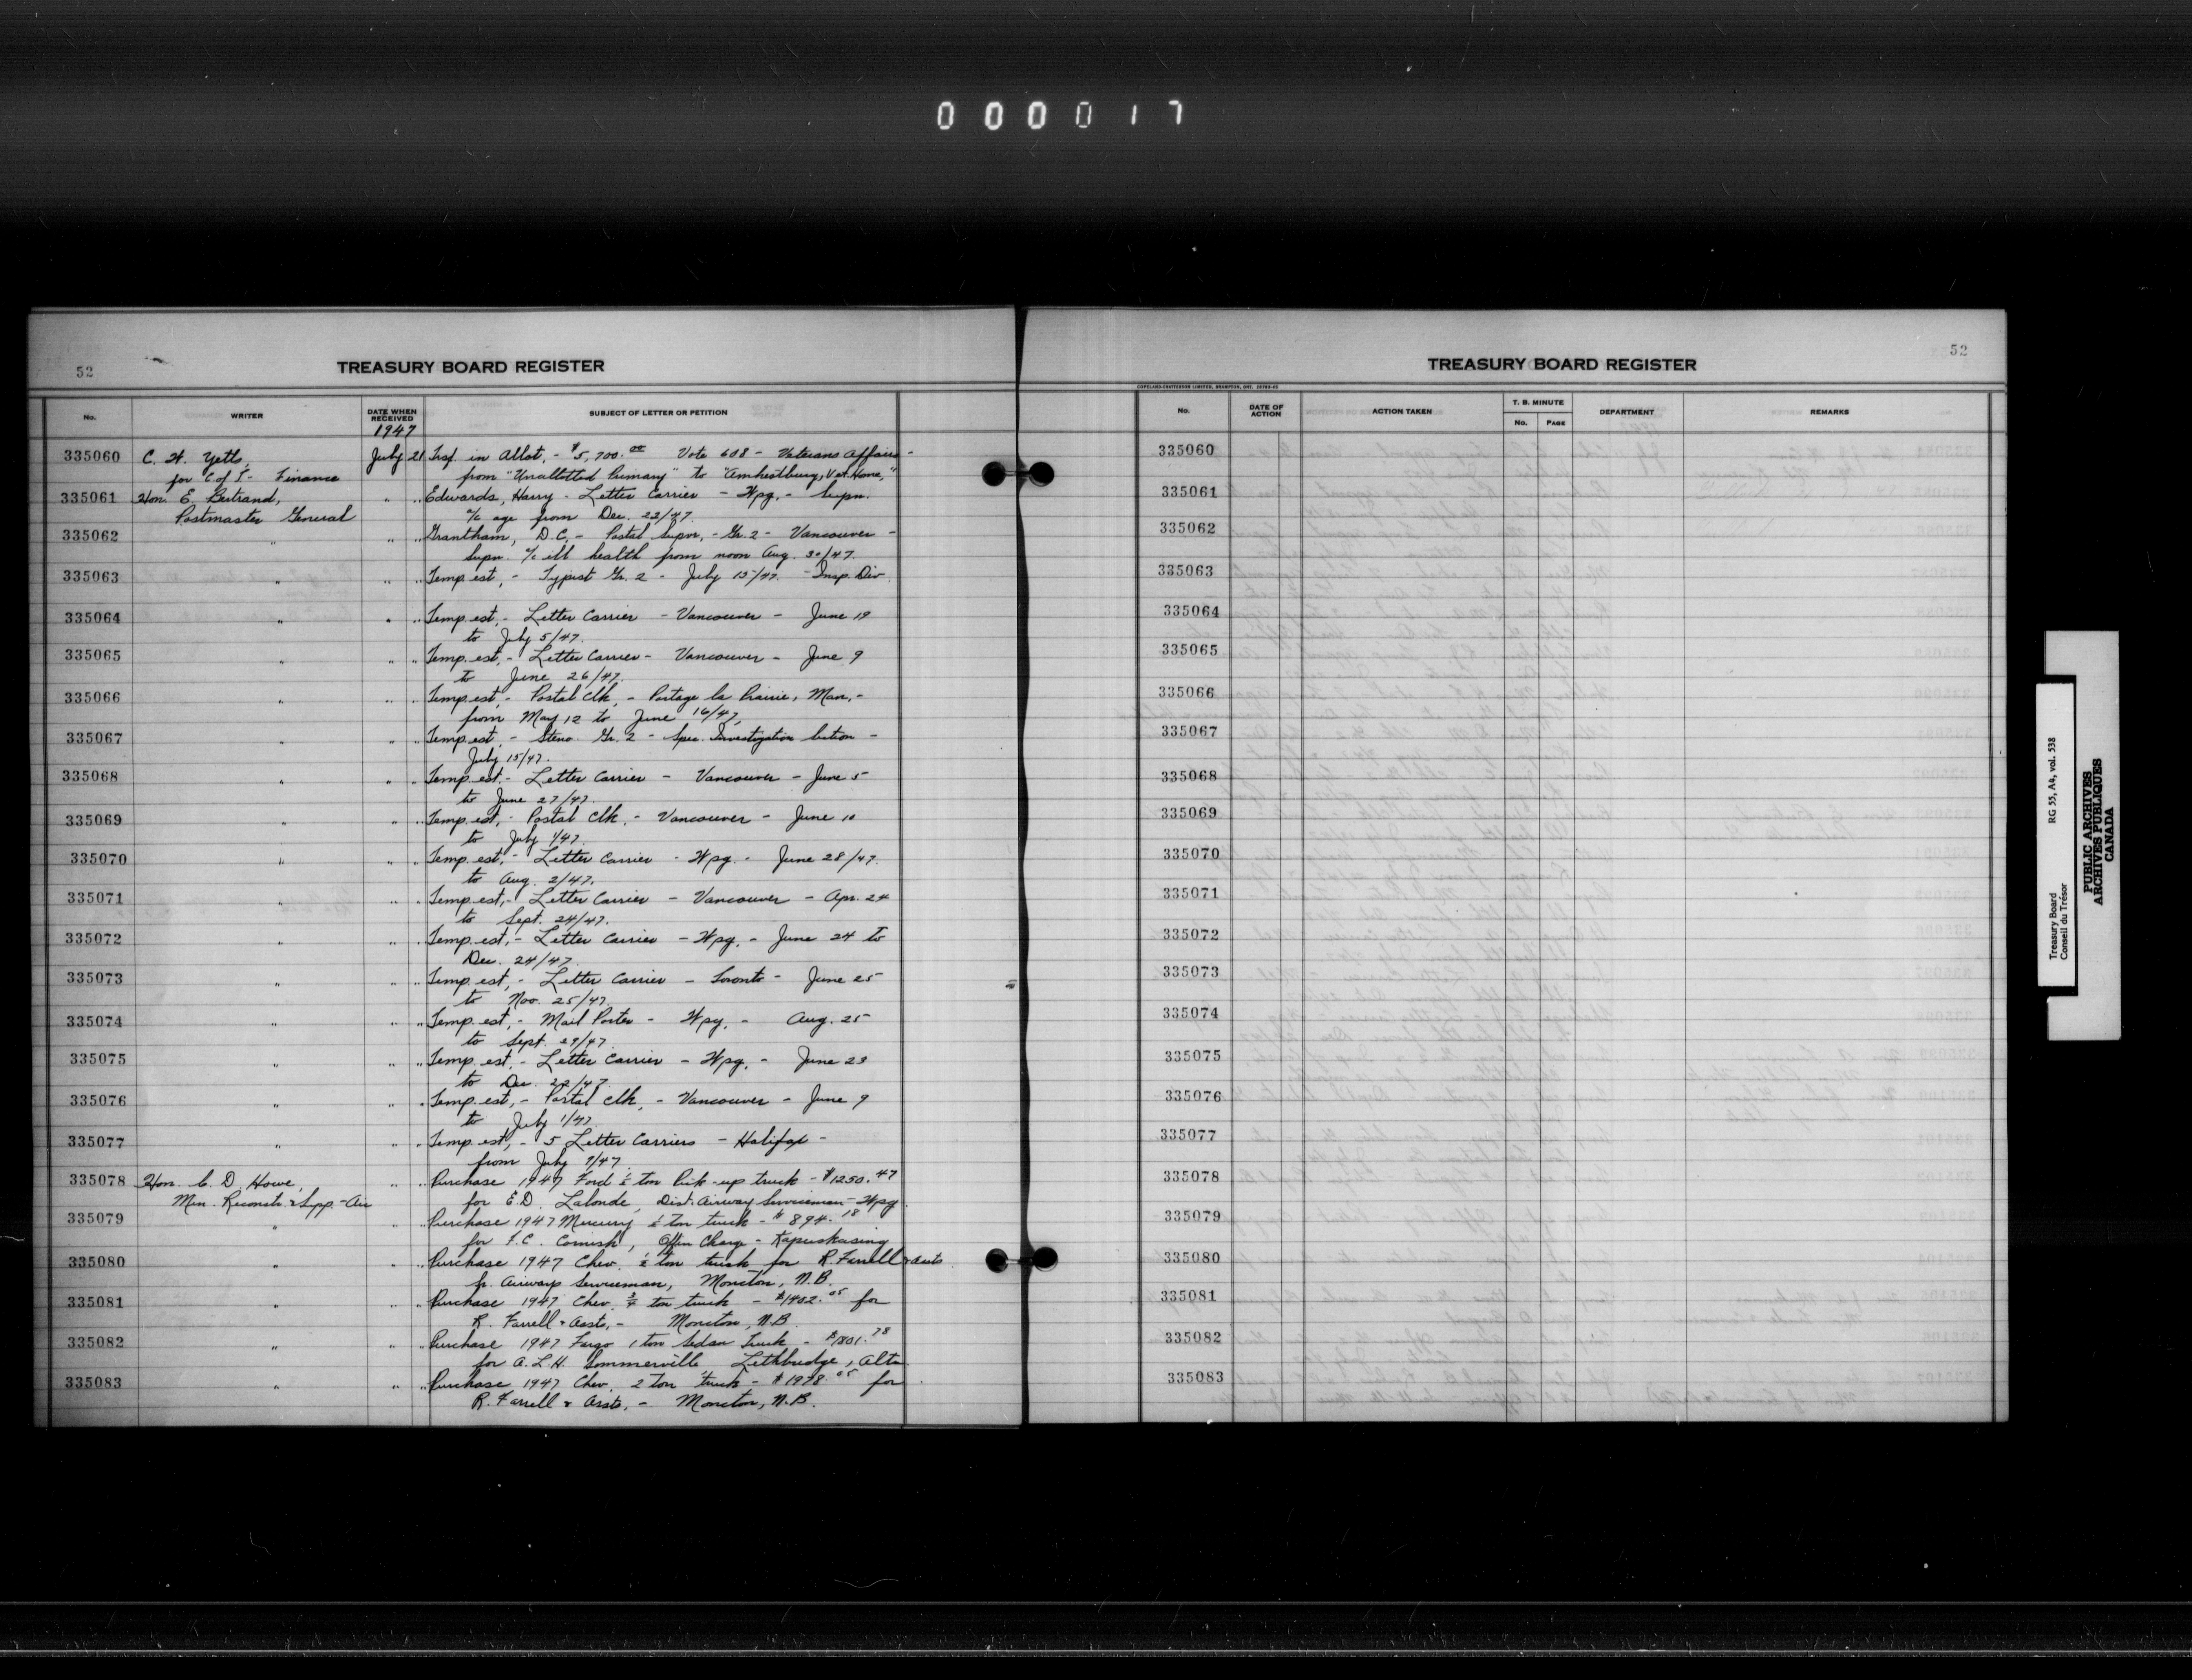 000017
52
TREASURY BOARD REGISTER
No. WRITER DATE WHEN RECEIVED SUBJECT OF LETTER OR PETITION
1947
335060 C. H. Yetts, July 21 Trsf. in Allot, - $5,700.00 Vote 608 - Veterans Affairs -
for C of T - Finance from "Unallotted Primary" to "Amherstburg, Vet. Home,"
335061 Hon. E. Bertrand, " " Edwards, Harry - Letter Carrier - Wpg, - Supn.
Postmaster General a/c age from Dec. 22/47.
335062 " " " Grantham, D.C, - Postal Supvr, - Gr. 2 - Vancouver -
Supn. a/c ill health from noon Aug. 30/47.
335063 " " " Temp. est, - Typist Gr. 2 - July 15/47. - Insp. Div.
335064 " " " Temp. est, - Letter Carrier - Vancouver - June 19
to July 5/47.
335065 " " " Temp. est, - Letter Carrier - Vancouver - June 9
to June 26/47.
335066 " " " Temp. est, - Postal Clk, - Portage la Prairie, Man, -
from May 12 to June 16/47,
335067 " " " Temp. est, - Steno. Gr. 2 - Spec. Investigation Section -
July 15/47.
335068 " " " Temp. est. - Letter Carrier - Vancouver - June 5
to June 27/47.
335069 " " " Temp. est, - Postal Clk. - Vancouver - June 10
to July 1/47.
335070 " " " Temp. est, - Letter Carrier - Wpg. - June 28/47.
to Aug. 2/47.
335071 " " " Temp. est, - Letter Carrier - Vancouver - Apr. 24
to Sept. 24/47.
335072 " " " Temp. est, - Letter Carrier - Wpg. - June 24 to
Dec. 24/47.
335073 " " " Temp. est, - Letter Carrier - Toronto - June 25
to Nov. 25/47.
335074 " " " Temp. est, - Mail Porter - Wpg, - Aug. 25
to Sept. 29/47.
335075 " " " Temp. est. - Letter Carrier - Wpg, - June 23
to Dec. 22/47.
335076 " " " Temp. est, - Postal Clk, - Vancouver - June 9
to July 1/47.
335077 " " " Temp. est, - 5 Letter Carriers - Halifax -
from July 7/47.
335078 Hon. C. D. Howe, " " Purchase 1947 Ford ½ ton Pick-up truck - $1250.47
Min. Reconstr. & Supp. - Air for E.D. Lalonde, Dist. Airway Serviceman - Wpg.
335079 " " " Purchase 1947 Mercury ½ ton truck - $894.18
for F.C. Cornish, Offr in Charge - Kapuskasing
335080 " " " Purchase 1947 Chev. ½ ton truck for R. Farrell & assts
jr. Airways Serviceman, Moncton, N.B.
335081 " " " Purchase 1947 Chev. ¾ ton truck - $1402.05 for
R. Farrell & Assts, - Moncton, N.B.
335082 " " " Purchase 1947 Fargo 1 ton Sedan Truck - $1801.78
for A.L.H. Sommerville Lethbridge, Alta
335083 " " " Purchase 1947 Chev. 2 ton truck - $1978.05 for
R. Farrell & Assts, - Moncton, N.B.
52
TREASURY BOARD REGISTER
COPELAND-CHATTERSON LIMITED, BRAMPTON, ONT.
No. DATE OF ACTION ACTION TAKEN T. B. MINUTE No. PAGE DEPARTMENT REMARKS
335060
335061
335062
335063
335064
335065
335066
335067
335068
335069
335070
335071
335072
335073
335074
335075
335076
335077
335078
335079
335080
335081
335082
335083
Treasury Board RG 55, A4, vol. 538
Conseil du Trésor
PUBLIC ARCHIVES
ARCHIVES PUBLIQUES
CANADA